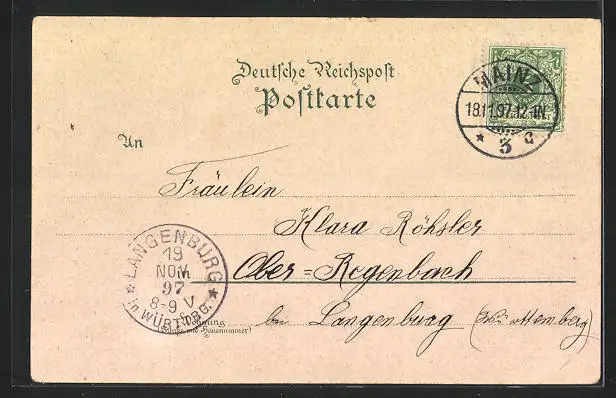 Deutsche Reichspost
Postkarte
MAINZ
18.11.97.12-1N.
* 3 d
An
Fräulein
Klara Röhsler
Ober=Regenbach
bei Langenburg (Württemberg)
* LANGENBURG *
19
NOV
97
8-9 V
in WÜRTTBG.
Wohnung
(Straße und Hausnummer)